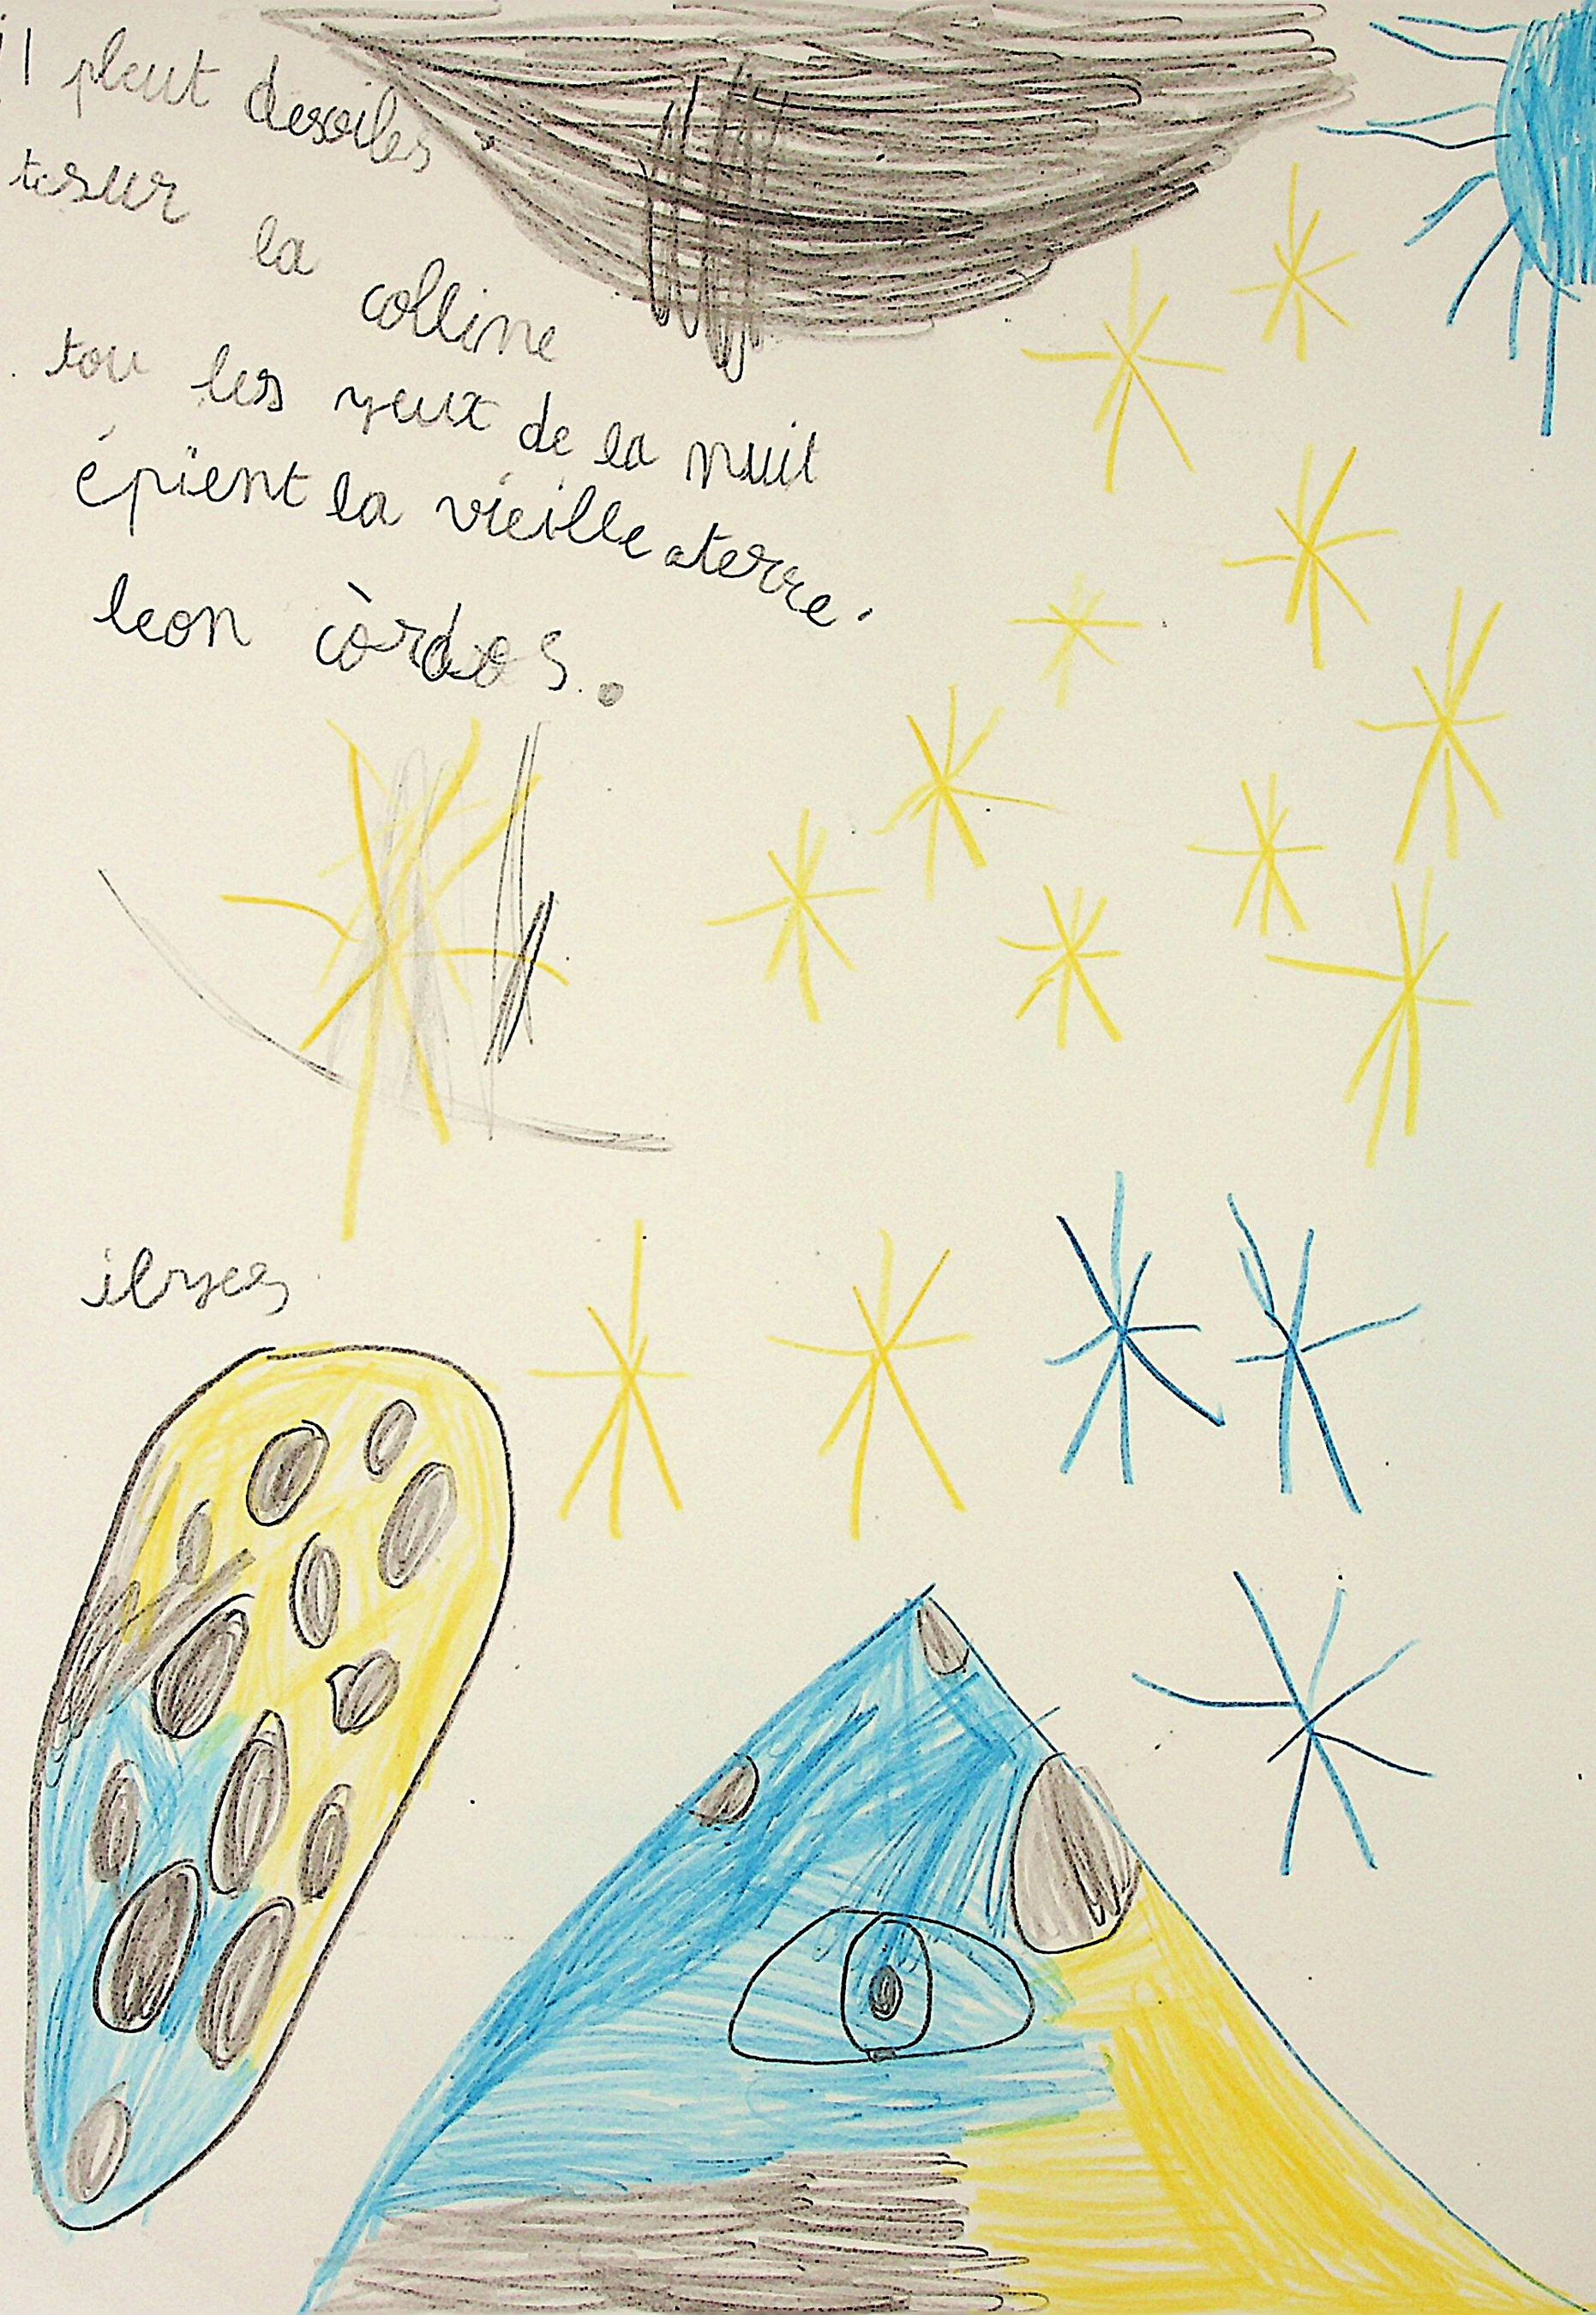 il pleut desoiles
tesur la colline
tou les yeux de la nuit
épient la vieille aterre.
leon còrdos.
ilyes